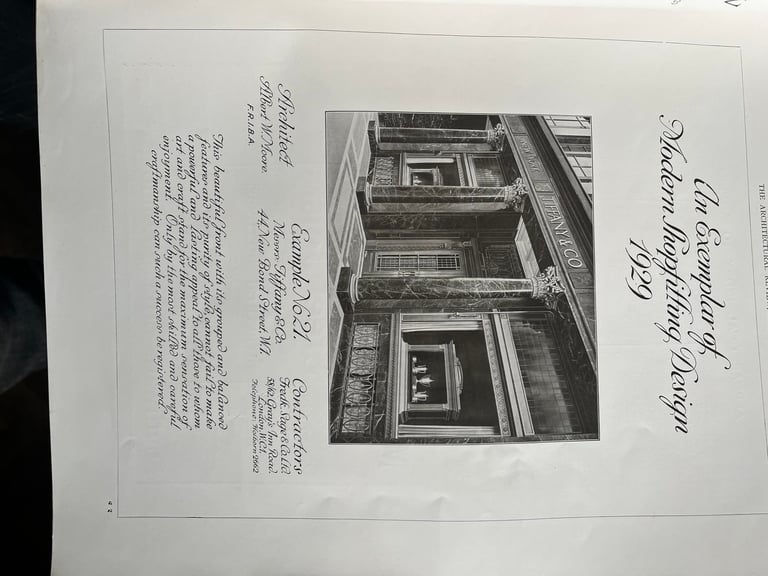 THE ARCHITECTURAL
An Exemplar of
Modern Shopfitting Design
1929
TIFFANY & CO
Architect
Albert W. Moore.
F.R.I.B.A.
Example No. 21.
Messrs Tiffany & Co.
44, New Bond Street, W.1.
Contractors
Fredk. Sage & Co. Ltd
58/62, Gray's Inn Road.
London, W.C.1.
Telephone: Holborn 2662
This beautiful front with its grouped and balanced
features and its purity of style, cannot fail to make
a powerful and lasting appeal to all those to whom
art and craft stand for the maximum sensation of
enjoyment. Only by the most skilled and careful
craftmanship can such a success be registered.